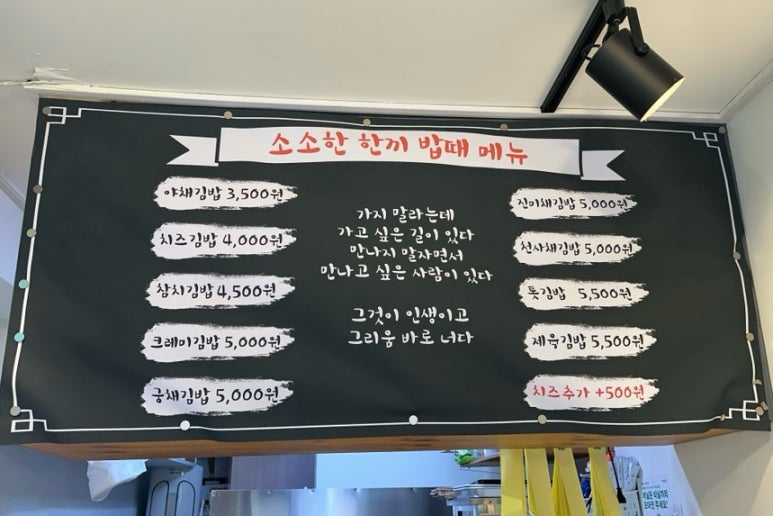 소소한 한끼 밥때 메뉴
야채김밥 3,500원
치즈김밥 4,000원
참치김밥 4,500원
크레미김밥 5,000원
궁채김밥 5,000원
가지 말라는데
가고 싶은 길이 있다
만나지 말자면서
만나고 싶은 사람이 있다
그것이 인생이고
그리움 바로 너다
진미채김밥 5,000원
천사채김밥 5,000원
톳김밥 5,500원
제육김밥 5,500원
치즈추가 +500원